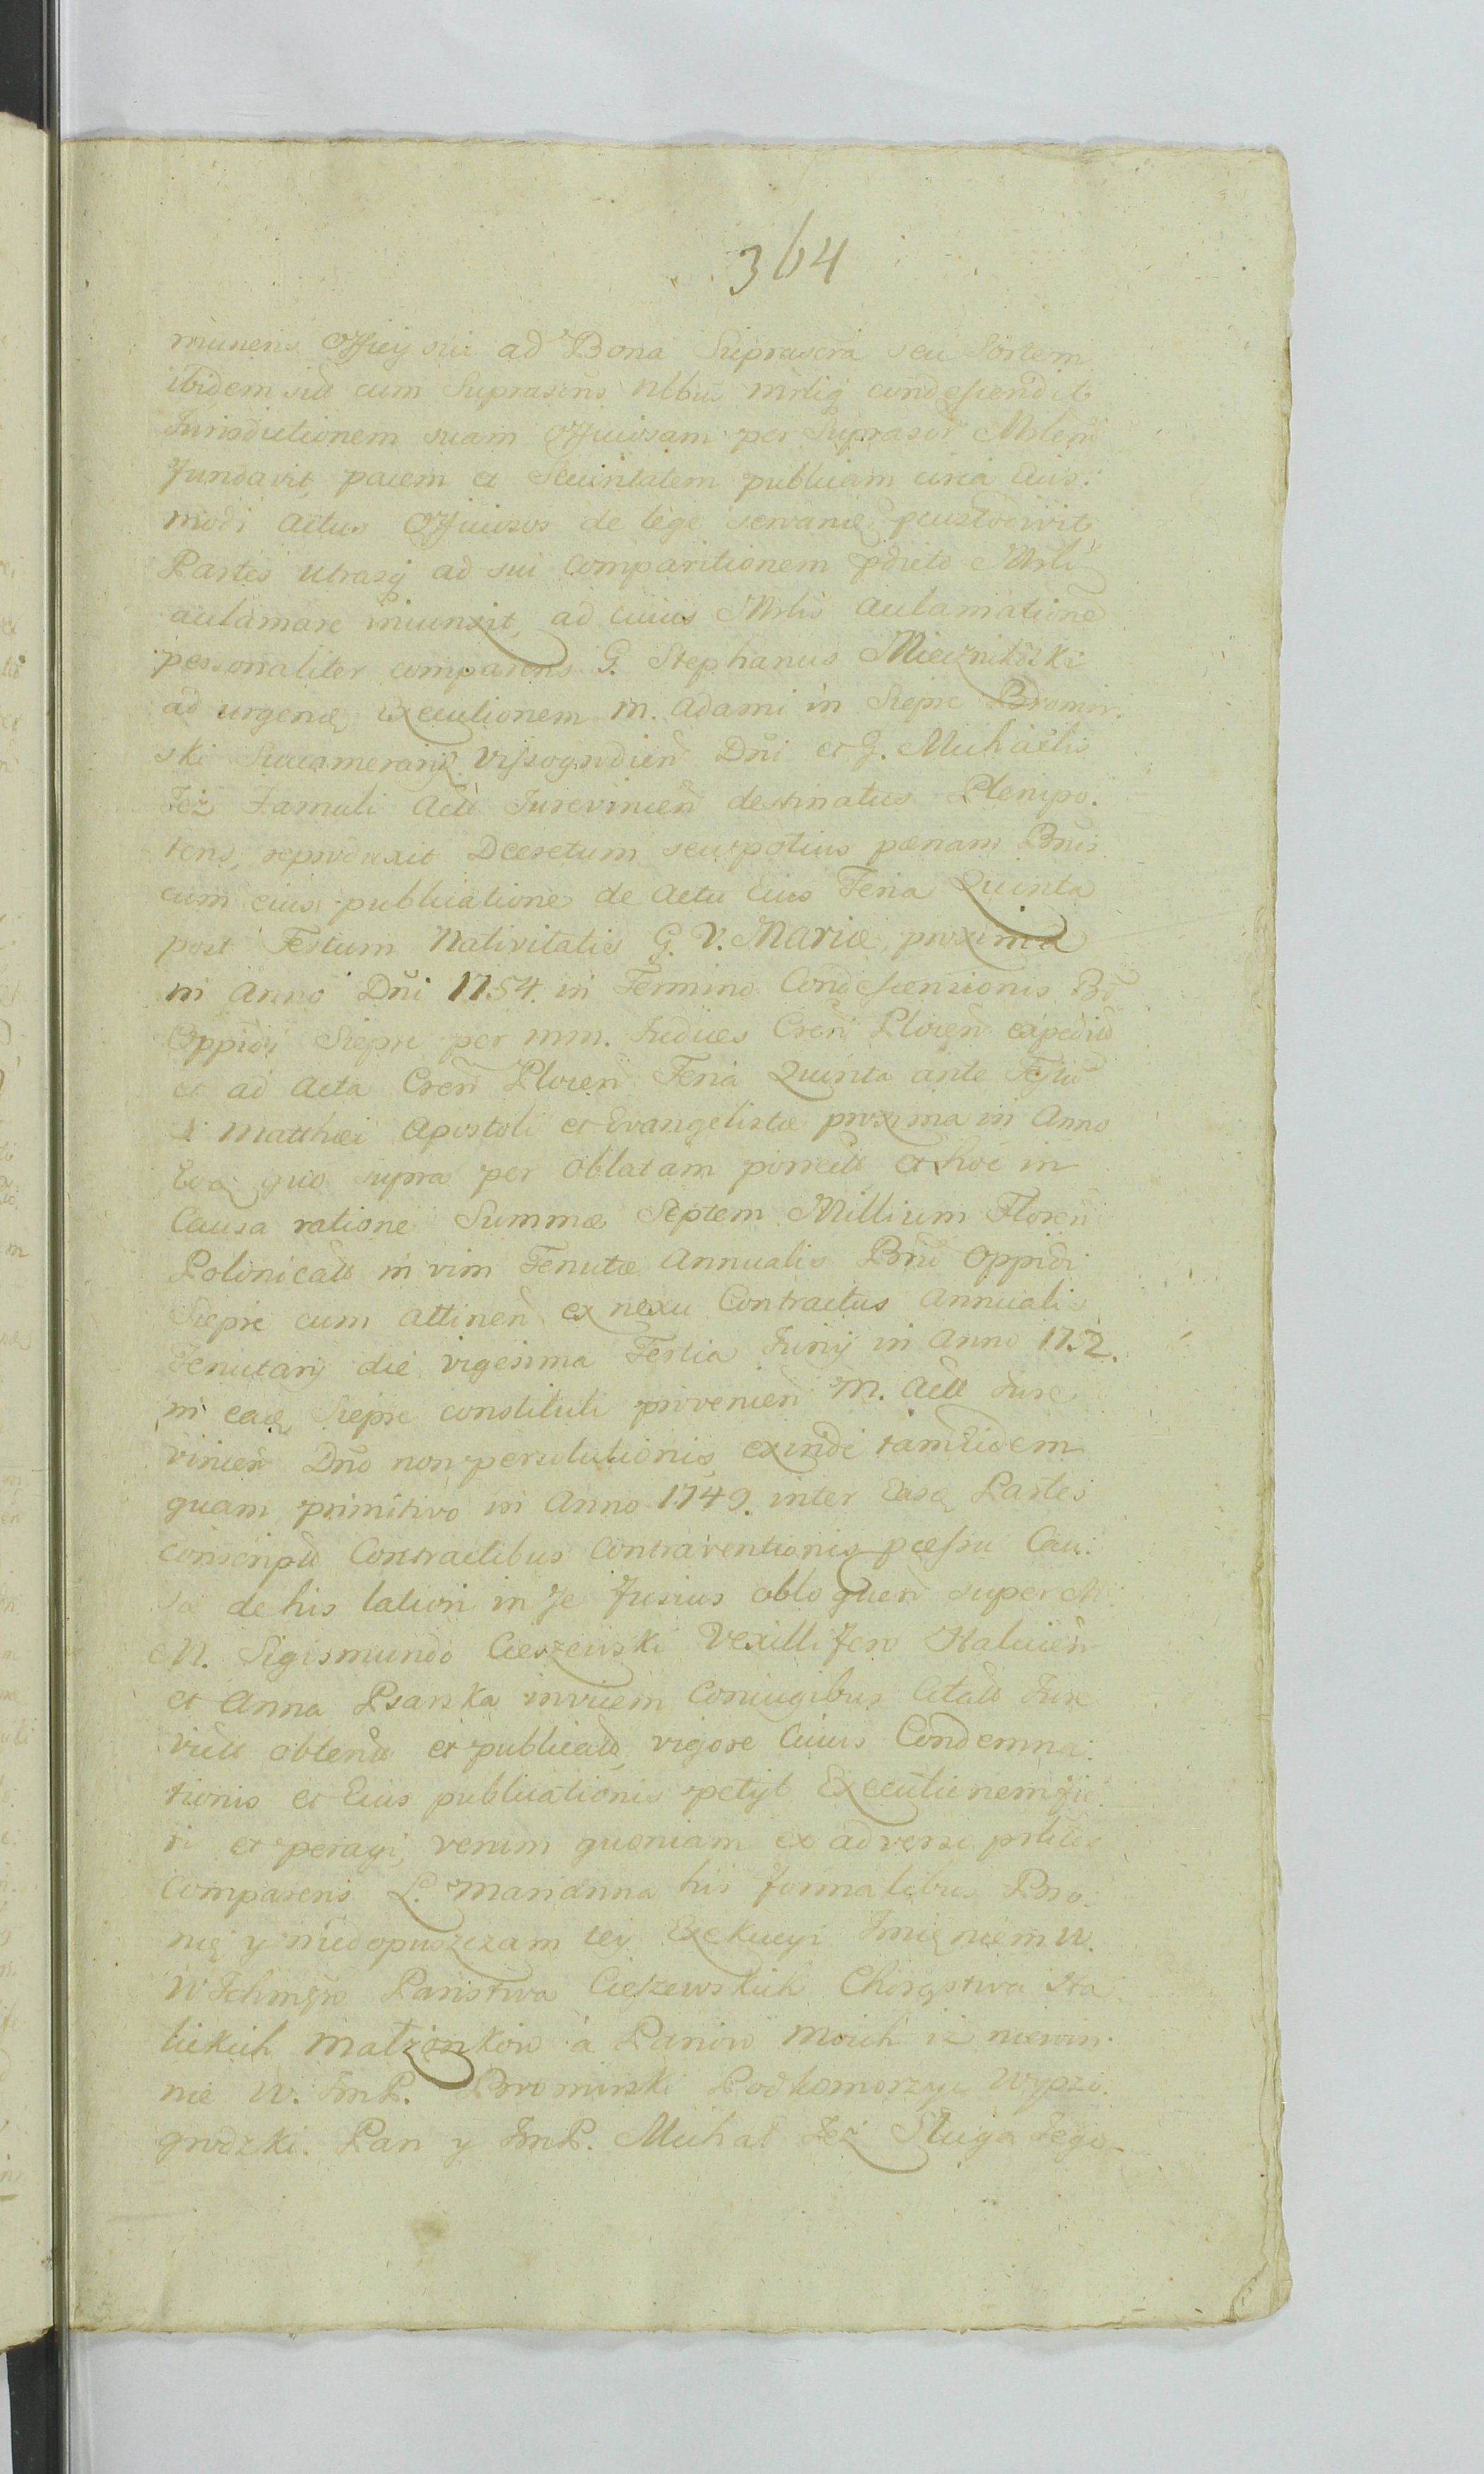 364
muneris Officij sui ad Bona Suprascra seu Sortem
ibidem sitt cum Suprascris Nbbus mrlig condescendit
Jurisdictionem suam Officiosam per Suprascr Mrlem
fundavit, pacem et Securitatem publicam circa Eius:
modi Actus Officiosos de lege servanda pcustodivit
Partes utrasq ad sui Comparitionem pdicto Mrli
acclamare iniunxit, ad cuius Mrlis Acclamatione
personaliter comparens G. Stephanus Miecznikoski
ad urgendã Executionem M. Adami in Sieprc Bromir:
ski Succamerarij Vissogrodien Dñi et G. Michaelis
Jeż Famuli Actt Jurevincen destinatus Plenipo:
tens, reproduxit Decretum seu potius pænam Bnis
cum eius publicatione de Actu Eius Feria Quinta
post Festum Nativitatis G. V. Mariæ, proxima
in Anno Dñi 1754. in Termino Condescensionis Bo
Oppidi Sieprc per MM. Judices Cren Plocen expedito
et ad Acta Cren Plocen Feria Quinta ante Festũ
S Matthæi Apostoli et Evangelistæ proxima in Anno
Eoq quo supra per Oblatam porrectt et hoc in
Causa ratione Summæ Septem Millium Floren
Polonicalt in vim Tenutæ Annualis Bru Oppidi
Sieprc cum Attinen ex nexu Contractus Annualis
Tenutarij die vigesima Tertia Junij in Anno 1752.
in eaq Sieprc constituti provenien M. Actt Jure
vincen Dño non persolutionis, exinde tam eidem
quam primitivo in Anno 1749. inter Easq Partes
conscriptt Contractibus Contraventionis pcessu Cau:
sa de his latiori in se fusius obloquen super M.
N. Sigismundo Cieszewski Vexillifero Halicien
et Anna Psarska invicem Coniugibus Citatt Jure
victt obtentt et publicatt, vigore Cuius Condemna:
tionis et Eius publicationis petijt Executionem fie:
ri et peragi, verum quoniam ex adverso prlter
Comparens L. Marianna his formalibus Bro:
nię y niedopuszczam tey Exekucyi Imięniem W.
W Jchmsw Państwa Cieszewskich Chorąstwa Ha:
lickich Małżonkow a Panow Moich iz niewin:
nie W. JmP. Bromirski Podkomorzy Wyszo:
grodzki Pan y JmP. Michał Jeż Sługa Jego